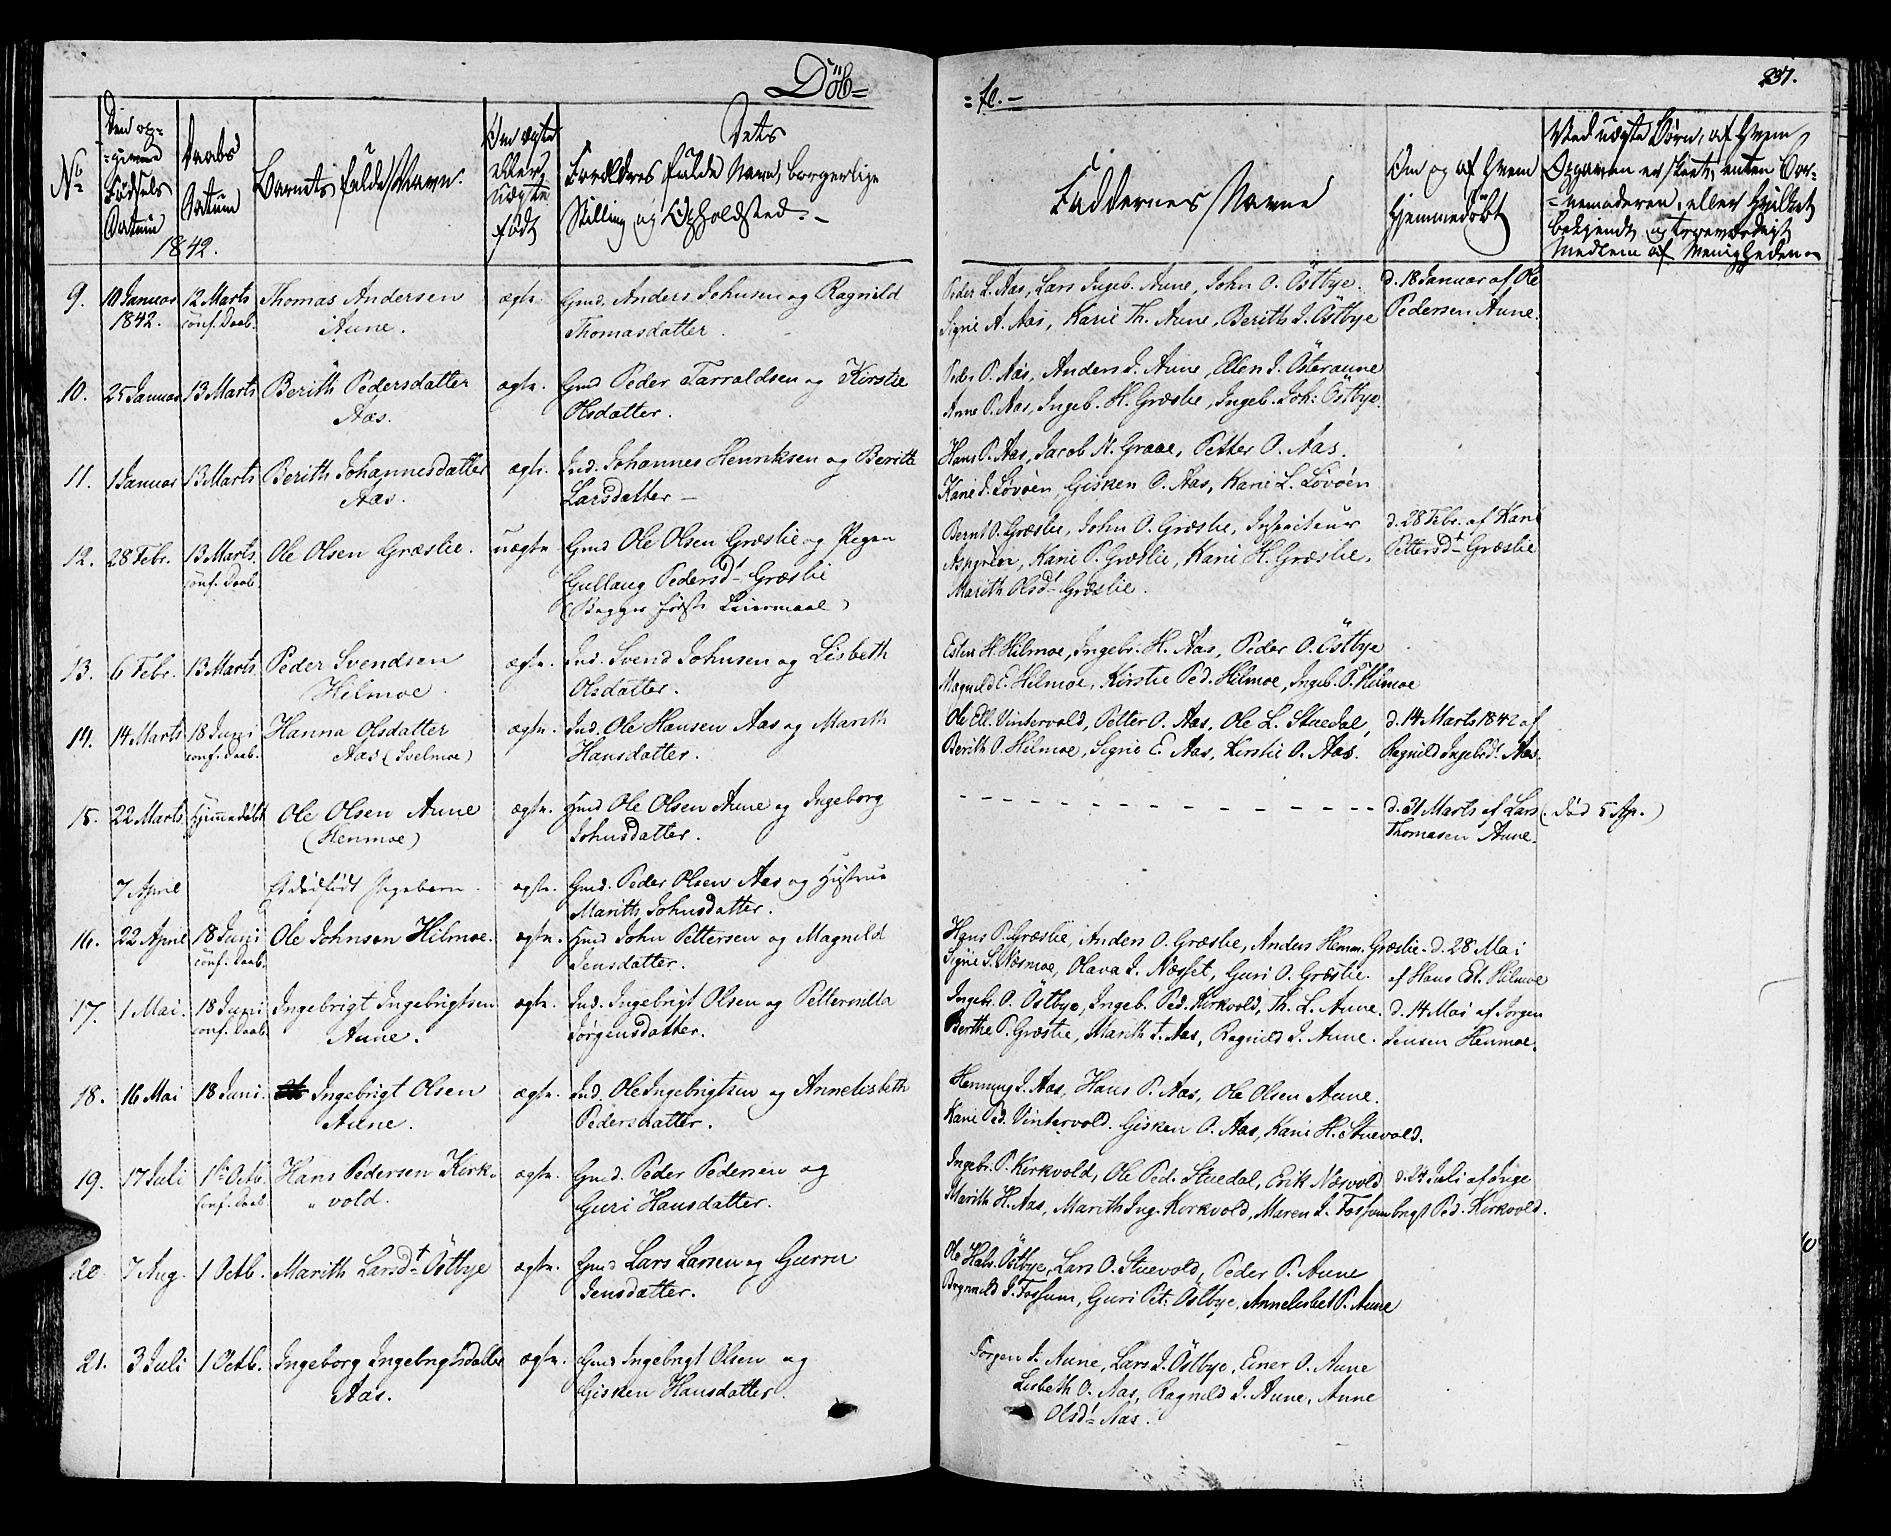 Döb=
=te.-
237.
No
Den op-
=givne
Födsels
Datum
Daabs
Datum
1842.
Barnets fulde Navn.
Om ægte
eller
uægte
födt
Dets
Forældres fulde Navn, borgerlige
Stilling og Opholdsted.-
Faddernes Navne
Om og af Hvem
hjemmedöbt
Ved uægte Børn, af Hvem
Opgaven er skeet, enten Bar-
=nemoderen, eller hvilket
bekjendt og troværdigt
Medlem af Menigheden
9. 10 Januar 12 Marts Thomas Andersen ægte. Gmd. Anders Johnsen og Ragnild
1842. conf. Daab. Aune. Thomasdatter.
Peder L. Aas, Lars Ingeb. Aune, John O. Östbye. d. 18 Januar af Ole
Signe A. Aas, Karie Th. Aune, Berith J. Östbye Pedersen Aune.
10. 25 Januar 13 Marts Berith Pedersdatter ægte. Gmd Peder Tarraldsen og Kirstie
Aas. Olsdatter.
Peder P. Aas, Anders J. Aune, Ellen J. Österaune
Anne P. Aas, Ingeb. H. Græslie, Ingeb. Joh: Östbye.
11. 1 Januar 13 Marts Berith Johannesdatter ægte. Ind. Johannes Henriksen og Berith
Aas. Larsdatter -
Hans P. Aas, Jacob N. Graae, Petter O. Aas.
Karie J. Løvöen, Gisken O. Aas, Karie L. Løvöen
12. 28 Febr. 13 Marts. Ole Olsen Græslie. uægte Gmd Ole Olsen Græslie og Pigen
conf. Daab. Gullaug Pedersdt Græslie
(Begges første Leiermaal)
Bernt O. Græslie, John O. Græslie, Inspecteur d. 28 Febr. af Kari
Aspgren, Karie P. Græslie, Karie H. Græslie, Pettersdt Græslie
Marith Olsdt Græslie.
13. 6 Febr. 13 Marts. Peder Svendsen ægte. Ind. Svend Johnsen og Lisbeth
Hilmoe. Olsdatter.
Esten H. Hilmoe, Ingebr. H. Aas, Peder O. Östbye
Magnild E. Hilmoe, Kirstie Ped. Hilmoe, Ingeb. P. Hilmoe
14. 14 Marts 18 Juni Hanna Olsdatter ægte. Ind. Ole Hansen Aas og Marith
conf. Daab. Aas (Svelmoe) Hansdatter.
Ole Ell. Vintervold, Petter O. Aas, Ole L. Stuedal, d. 14 Marts 1842 af
Berith O. Hilmoe, Signe E. Aas, Kirstie O. Aas. Ragnild Ingebdt Aas.
15. 22 Marts Hjemmedöbt Ole Olsen Aune ægte. Gmd Ole Olsen Aune og Ingeborg
(Henmoe) Johnsdatter.
- - - - - - - - - - - - d. 31 Marts af Lars (Død 5 Ap.)
Thomesen Aune.
7 April Et dødfødt Pigebarn. ægte. Gmd. Peder Olsen Aas og Hustrue
Marith Johnsdatter.
16. 22 April 18 Juni Ole Johnsen Hilmoe. ægte. Gmd John Pettersen og Magnild
conf. Daab. Jensdatter.
Hans P. Græslie, Anders O. Græslie, Anders Hemm. Græslie. d. 28 Mai
Signe S. Næsmoe, Olava J. Næsset, Guri O. Græslie. af Hans Est. Hilmoe
17. 1 Mai. 18 Juni Ingebrigt Ingebrigtsen ægte. Ind. Ingebrigt Olsen og Petternilla
conf. Daab. Aune. Jørgensdatter.
Ingebr. O. Östbye, Ingeb. Ped. Kirkvold, Th. L. Aune. d. 14 Mai af Jörgen
Berthe P. Græslie, Marith T. Aas, Ragnild J. Aune. Jensen Henmoe.
18. 16 Mai 18 Juni. Ingebrigt Olsen ægte. Ind. Ole Ingebrigtsen og Annelisbeth
Aune. Pedersdatter.
Henning J. Aas, Hans P. Aas, Ole Olsen Aune.
Karie Ped. Vintervold. Gisken O. Aas, Karie H. Stuevold.
19. 17 Juli 1ste Octb. Hans Pedersen Kirk- ægte. Gmd. Peder Pedersen og
Conf. Daab. „ vold. Guri Hansdatter.
Ingebr. P. Kirkvold, Ole Ped. Stuedal, Erik Næsvold d. 24 Juli af Inge
Marith H. Aas, Marith Ing. Kirkvold, Maren J. Fossum brigt Ped. Kirkvold.
20. 7 Aug. 1 Octb. Marith Larsdt Östbye ægte. Gmd Lars Larsen og Gurru
Jensdatter.
Ole Hals. Östbye, Lars O. Stuevold, Peder P. Aune
Brynnild J. Fossum, Guri Pet: Östbye, Annelisbet P. Aune
21. 3 Juli 1 Octb. Ingeborg Ingebrigtsdatter ægte. Gmd Ingebrigt Olsen og
Aas. Gisken Hansdatter.
Jörgen J. Aune, Lars J. Östbye, Einer O. Aune
Lisbeth O. Aas, Ragnild J. Aune, Anne
Olsdt Aas.